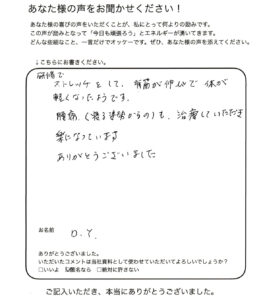 あなた様の声をお聞かせください！
あなた様の喜びの声をいただくことが、私にとって何よりの励みです。
この声が励みとなって「今日も頑張ろう」とエネルギーが湧いてきます。
どんな些細なこと、一言だけでオッケーです。ぜひ、あなた様の声を添えてください。
↓こちらにお書きください。
ストレッチをして、背筋が伸びて体が
軽くなったようです。
腰痛（寝る姿勢からの）も、治療していただき
楽になっています
ありがとうございました
お名前
D.Y.
ありがとうございました。
いただいたコメントは当社資料として使わせていただいてよろしいでしょうか？
□いいよ ☑匿名なら □絶対に許さない
ご記入いただき、本当にありがとうございました。